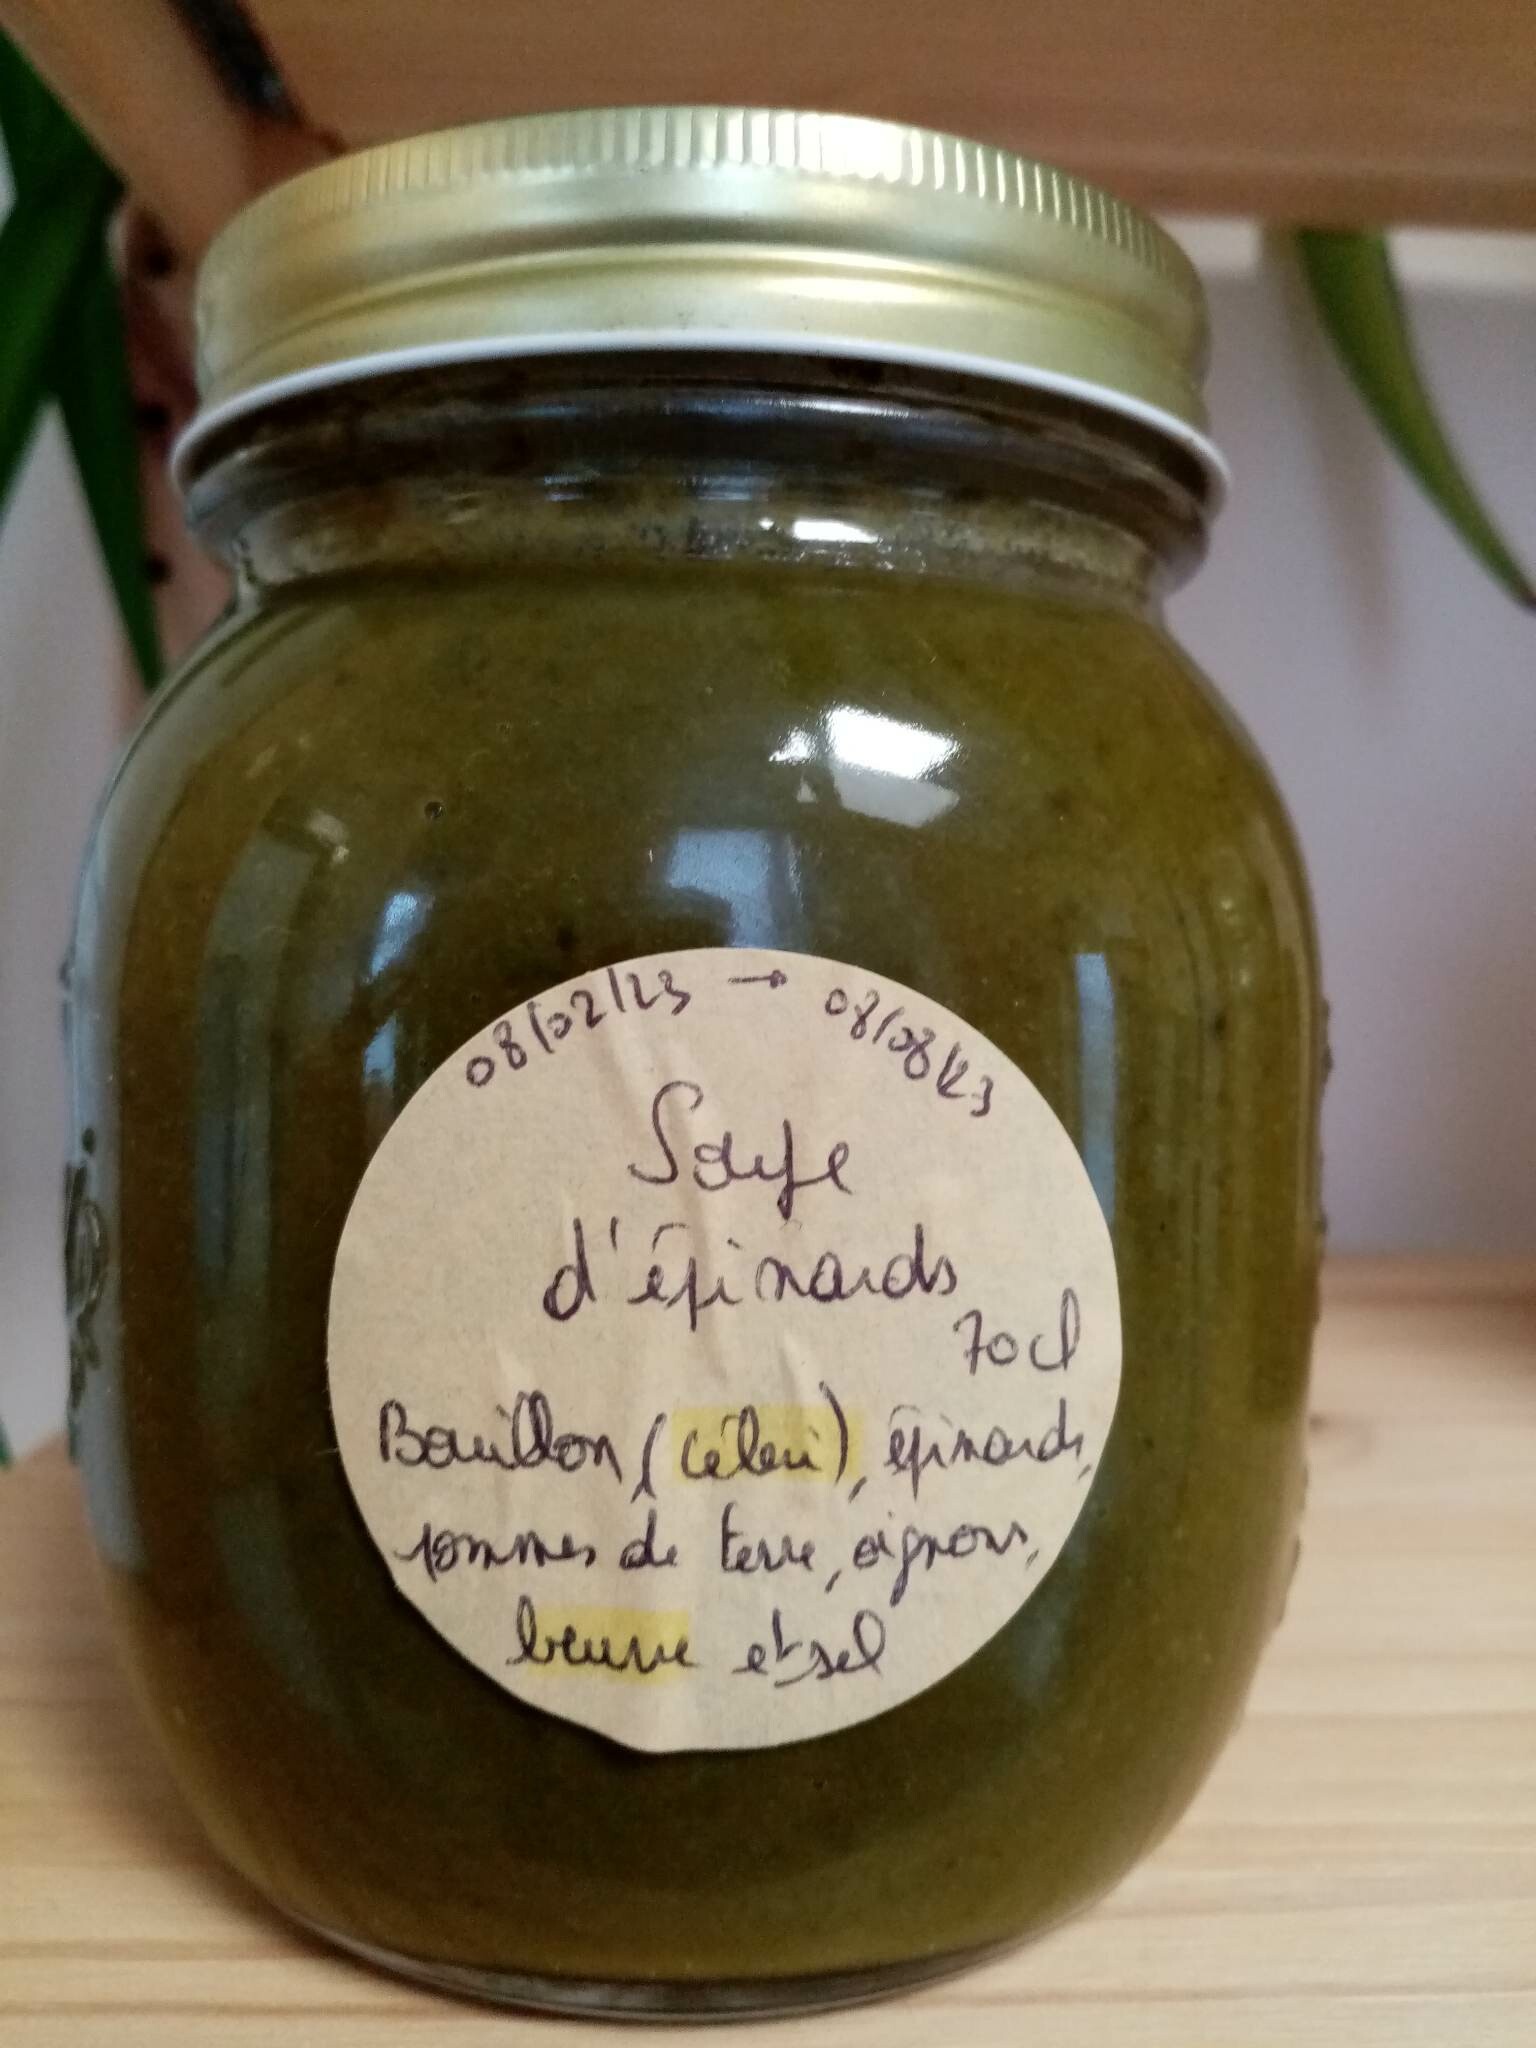 08/02/23 → 08/08/23
Soupe
d'épinards
70cl
Bouillon (céleri), épinards,
pommes de terre, oignons,
beurre et sel